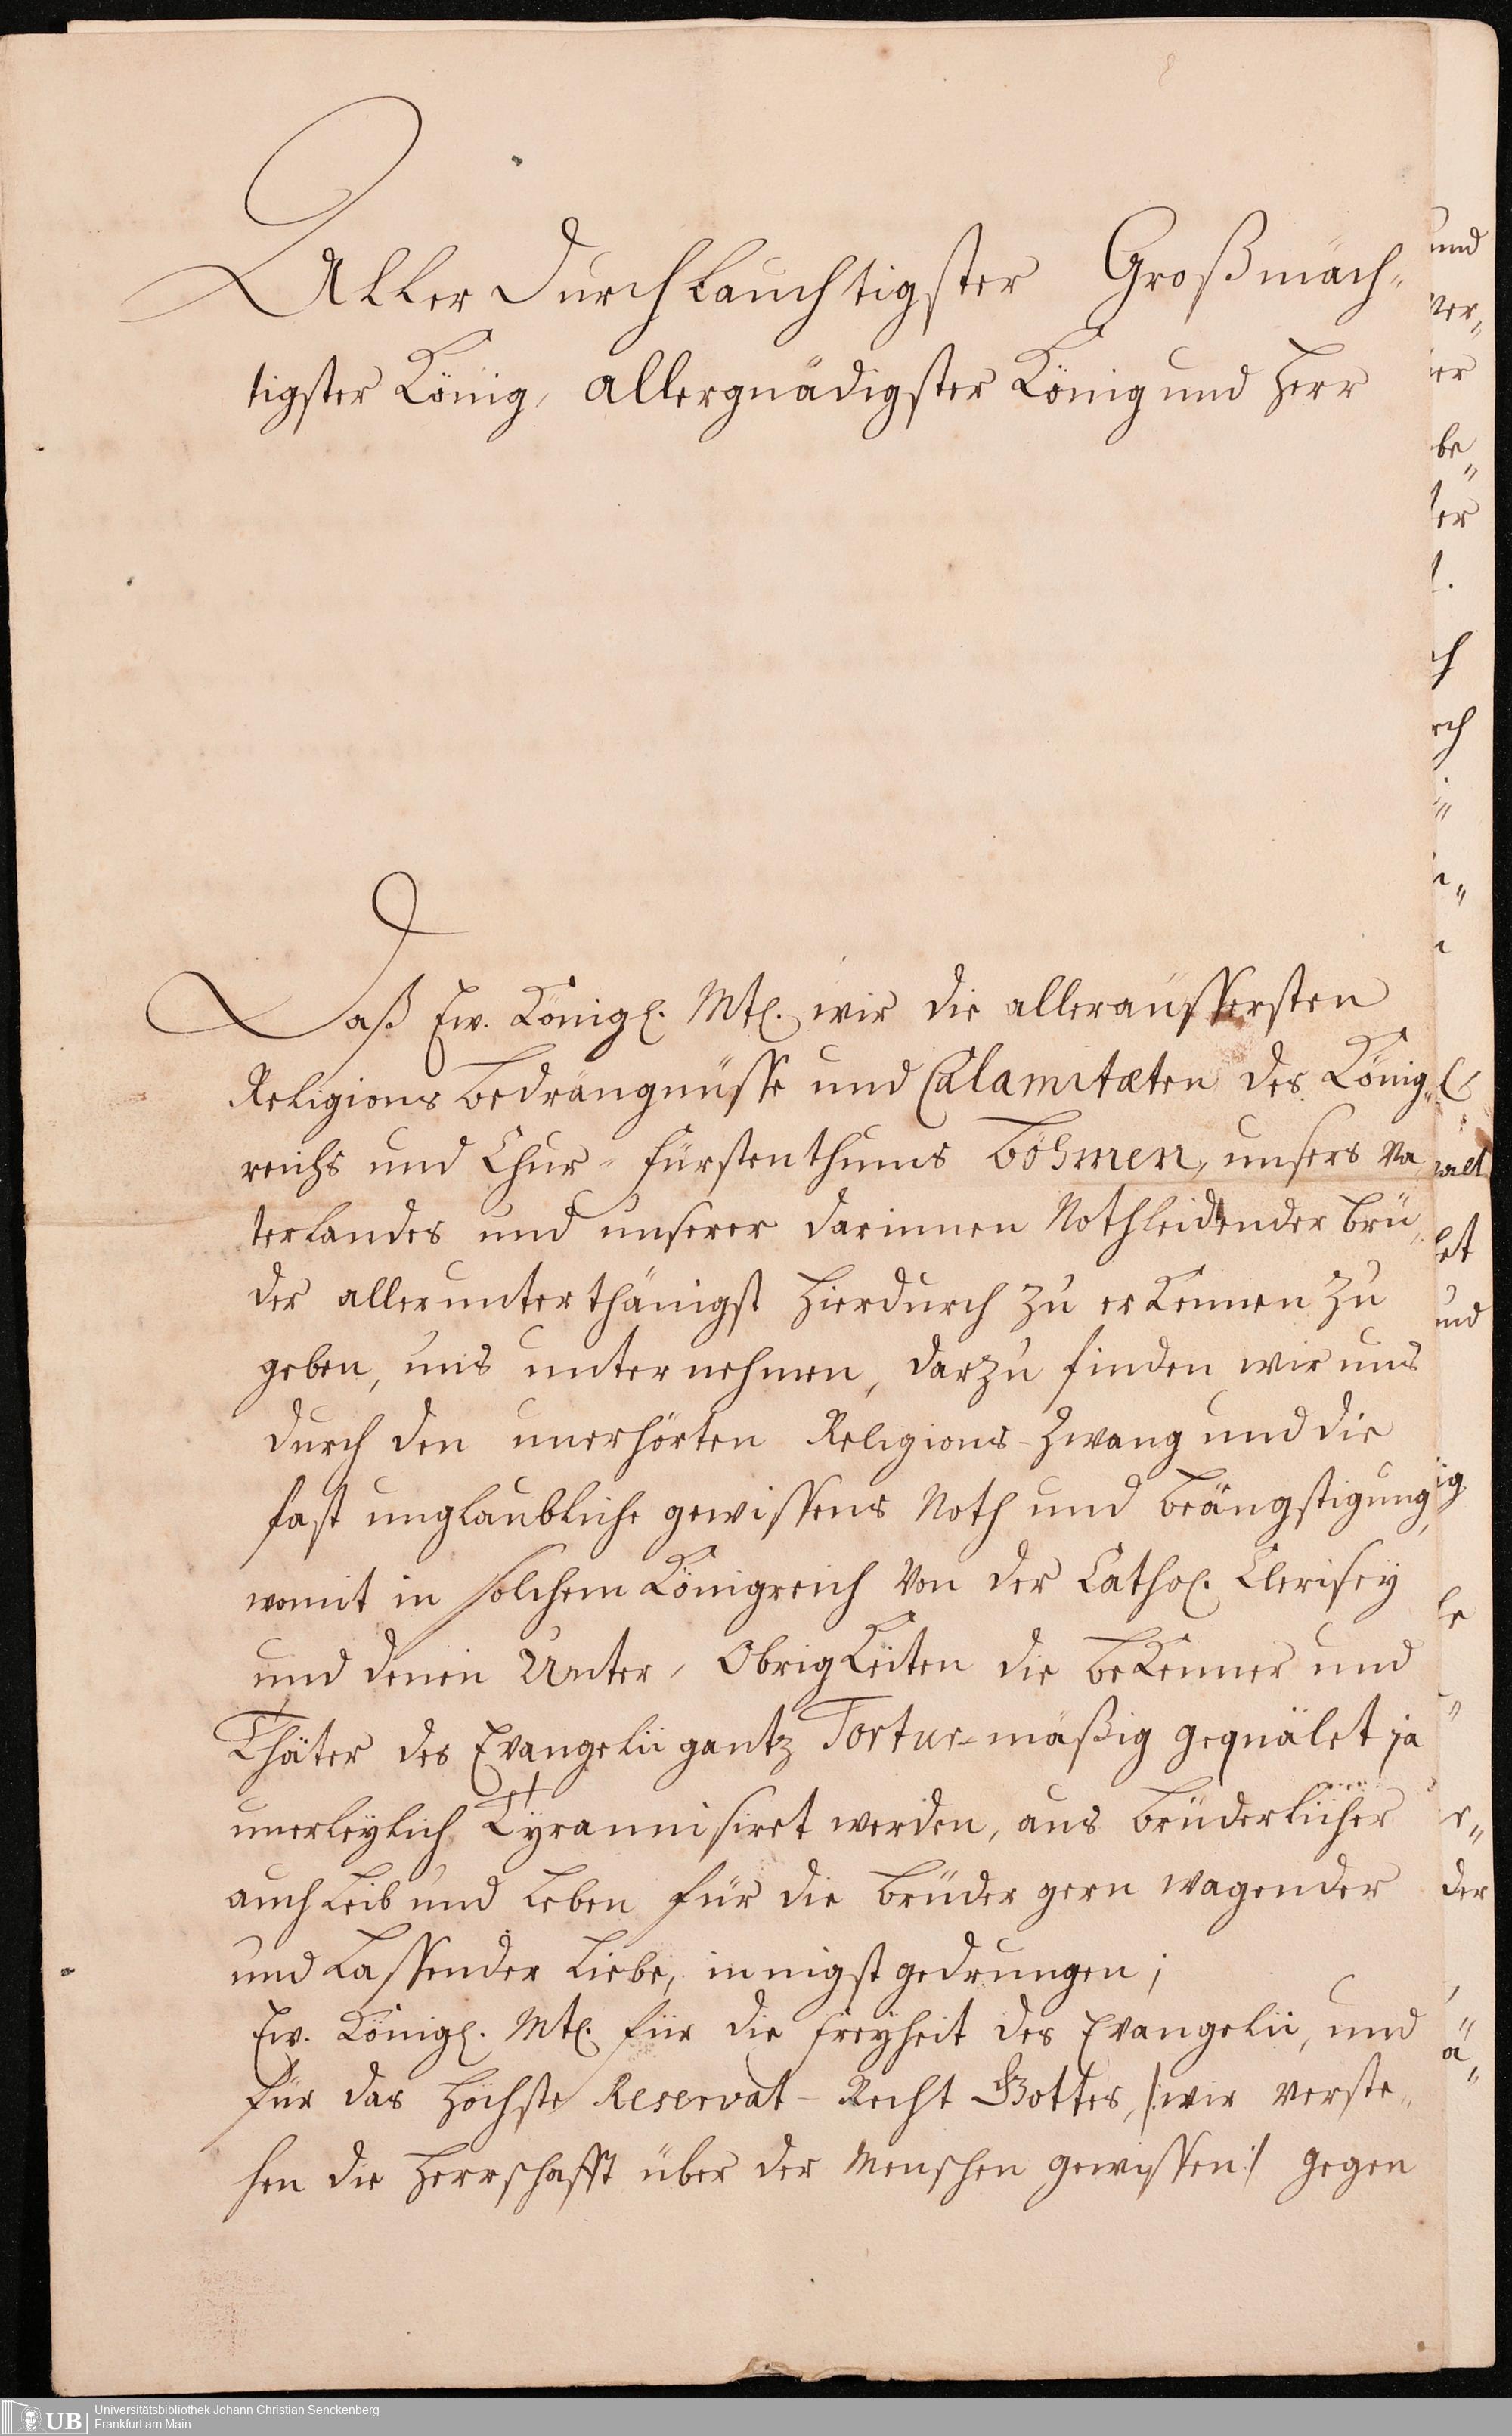 Aller Durchlauchtigster Großmäch-
tigster König, allergnädigster König und Herr
Daß Ew. Königl. Mtl. wir die alleräussersten
Religions Bedrängnüsse und Calamitæten des König-
reichs und Chur-Fürstenthums Böhmen, unsers Va-
terlandes und unserer darinnen Nothleidender Brü-
der allerunterthänigst hierdurch zu erkennen zu
geben, uns unternehmen, darzu finden wir uns
durch den unerhörten Religions-Zwang und die
fast unglaubliche gewissens Noth und Beängstigung,
womit in solchem Königreich von der Cathol. Clerisey
und denen Unter-Obrigkeiten die Bekenner und
Thäter des Evangelii gantz Tortur-mäßig gequälet ja
unerleylich Tyrannisiret werden, aus Brüderlicher
auch Leib und Leben für die Brüder gern wagender
und Lassender Liebe, innigst gedrungen;
Ew. Königl. Mtl. für die Freyheit des Evangelii, und
für das höchste Reservat-Recht Gottes, /:wir verste-
hen die Herrschafft über der Menschen gewissen:/ gegen
UB
Universitätsbibliothek Johann Christian Senckenberg
Frankfurt am Main